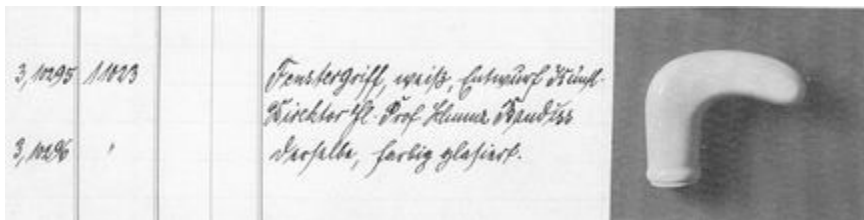 3,10295 11023 Fenstergriff, weiß, Entwurf Künstl.
Direktor Prof.
3,10296 " Derselbe, farbig glasiert.